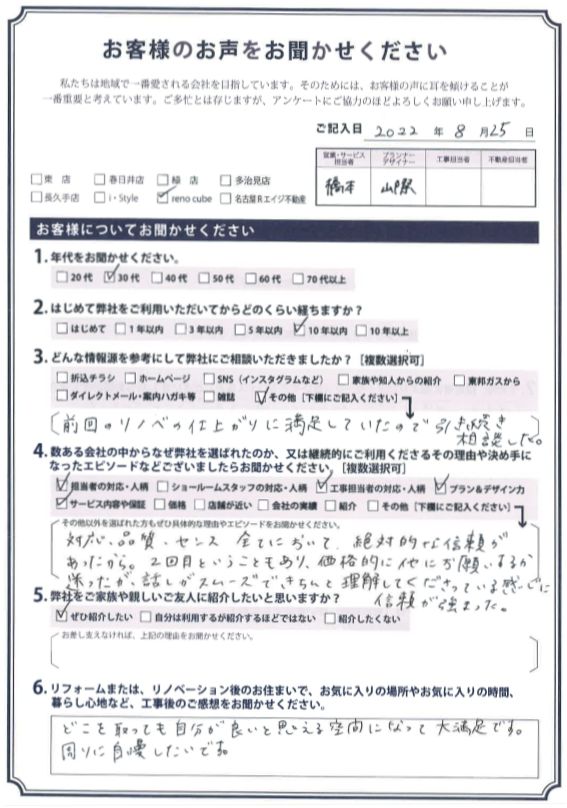 お客様のお声をお聞かせください
私たちは地域で一番愛される会社を目指しています。そのためには、お客様の声に耳を傾けることが
一番重要と考えています。ご多忙とは存じますが、アンケートにご協力のほどよろしくお願い申し上げます。
ご記入日 2022 年 8 月 25 日
営業・サービス担当者 プランナーデザイナー 工事担当者 不動産担当者
橋本
□東 店 □春日井店 □緑 店 □多治見店
□長久手店 □i・Style ☑reno cube □名古屋Rエイジ不動産
お客様についてお聞かせください
1. 年代をお聞かせください。
□20代 ☑30代 □40代 □50代 □60代 □70代以上
2. はじめて弊社をご利用いただいてからどのくらい経ちますか?
□はじめて □1年以内 □3年以内 □5年以内 ☑10年以内 □10年以上
3. どんな情報源を参考にして弊社にご相談いただきましたか?[複数選択可]
□折込チラシ □ホームページ □SNS(インスタグラムなど) □家族や知人からの紹介 □東邦ガスから
□ダイレクトメール・案内ハガキ等 □雑誌 ☑その他[下欄にご記入ください]
前回のリノベの仕上がりに満足していたので引き続き
相談した。
4. 数ある会社の中からなぜ弊社を選ばれたのか、又は継続的にご利用くださるその理由や決め手に
なったエピソードなどございましたらお聞かせください。[複数選択可]
☑担当者の対応・人柄 □ショールームスタッフの対応・人柄 ☑工事担当者の対応・人柄 ☑プラン&デザイン力
☑サービス内容や保証 □価格 □店舗が近い □会社の実績 □紹介 □その他[下欄にご記入ください]
その他以外を選ばれた方もぜひ具体的な理由やエピソードをお聞かせください。
対応、品質、センス 全てにおいて、絶対的な信頼が
あったから。2回目ということもあり、価格的に他にお願いするか
迷ったが、話しがスムーズできちんと理解してくださっている感じに
信頼が強まった。
5. 弊社をご家族や親しいご友人に紹介したいと思いますか?
☑ぜひ紹介したい □自分は利用するが紹介するほどではない □紹介したくない
お差し支えなければ、上記の理由をお聞かせください。
6. リフォームまたは、リノベーション後のお住まいで、お気に入りの場所やお気に入りの時間、
暮らし心地など、工事後のご感想をお聞かせください。
どこを取っても自分が良いと思える空間になって大満足です。
周りに自慢したいです。